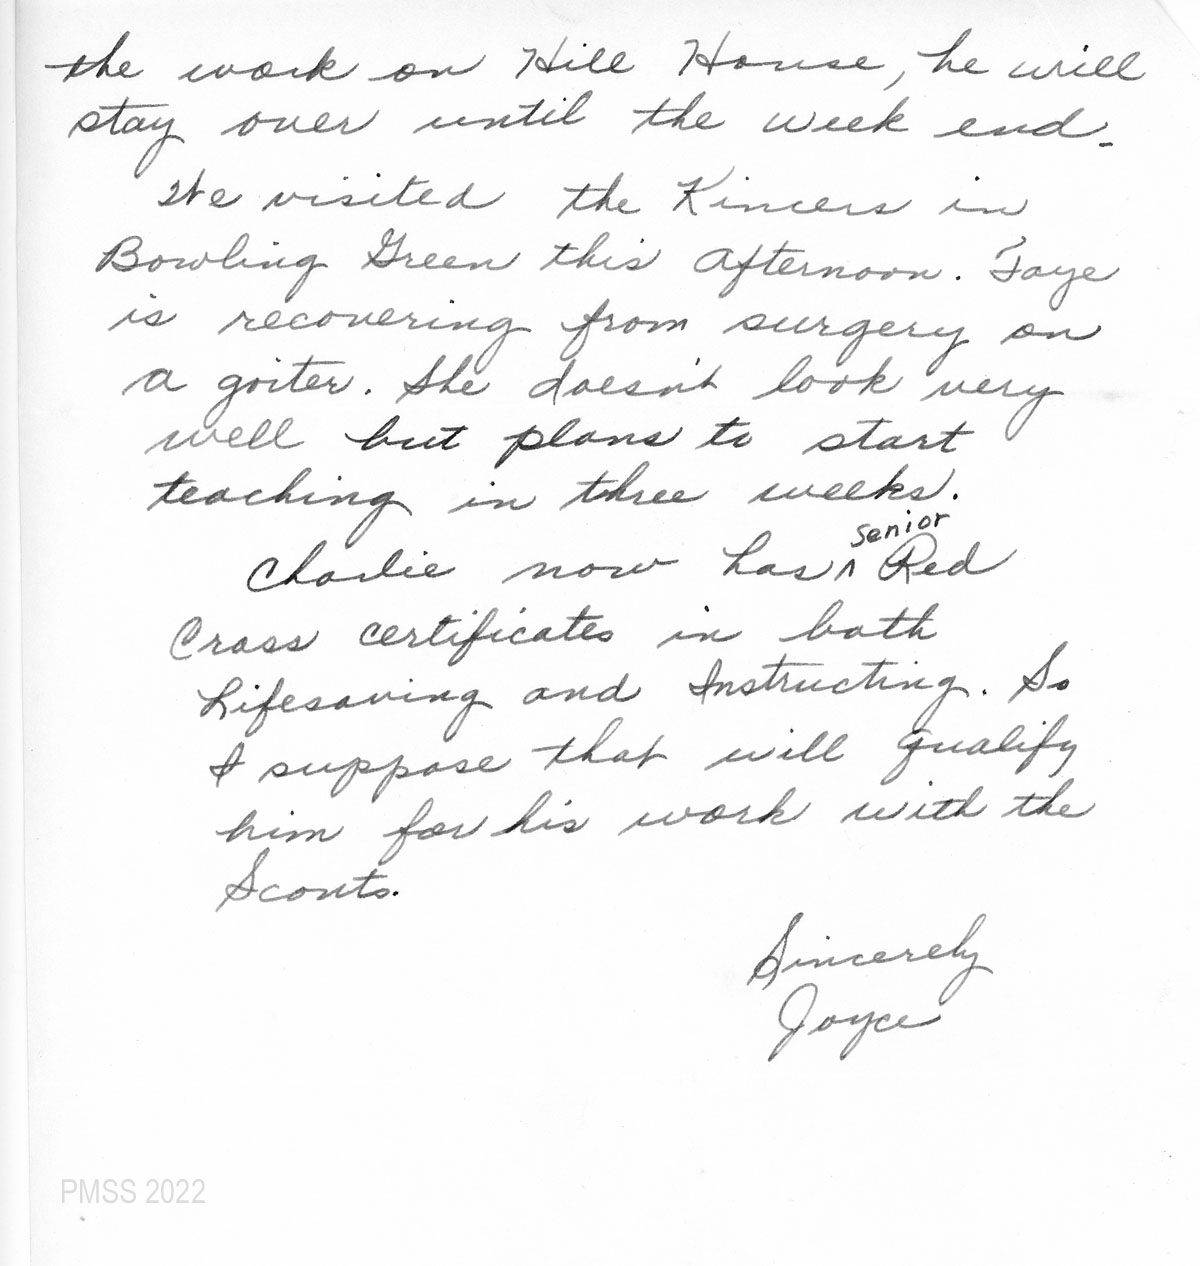 the work on Hill House, he will
stay over until the week end.
We visited the Kincers in
Bowling Green this afternoon. Faye
is recovering from surgery on
a goiter. She doesn't look very
well but plans to start
teaching in three weeks.
Charlie now has ^ senior Red
Cross certificates in both
Lifesaving and Instructing. So
I suppose that will qualify
him for his work with the
Scouts.
Sincerely
Joyce
PMSS 2022